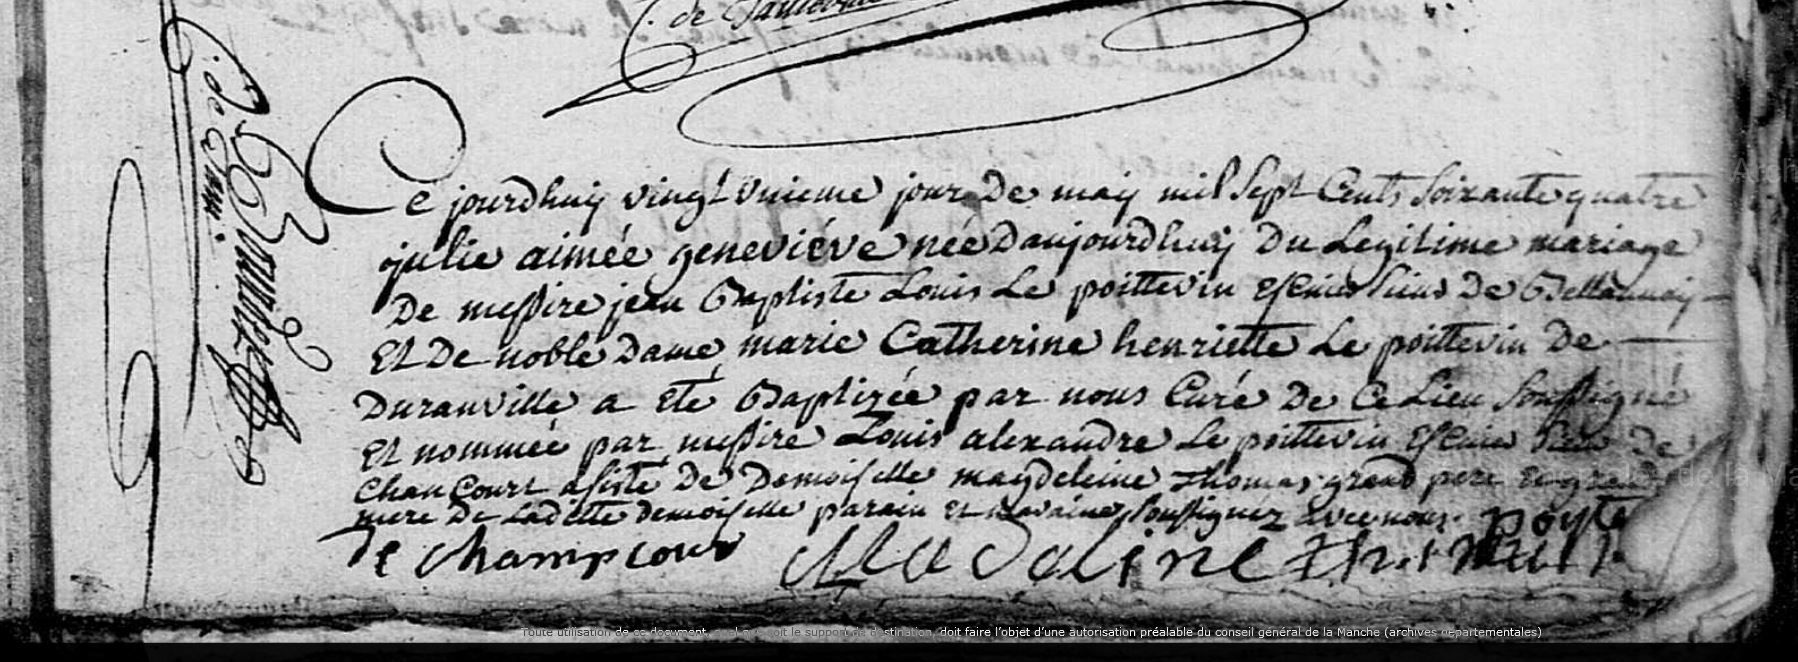 Ce jourdhuy vingt unieme jour De may mil Sept Cents Soixante quatre
julie aimée geneviéve née Daujourdhuy Du Legitime mariage
De messire jean Baptiste Louis Le poittevin Escuier Sieur De
Et De noble Dame marie Catherine henriette Le poittevin De
Duranville a eté Baptizée par nous Curé De Ce Lieu Soussigné
Et nommée par messire Louis alexandre Le poittevin Escuier Sieur De
Chancourt asisté De Demoiselle magdeleine Thomas grand pere et grand
mere De Ladette demoiselle parain et maraine Soussignez avec nous. poyte
de champcour Madaline
Toute utilisation de ce document, quel que soit le support de destination, doit faire l'objet d'une autorisation préalable du conseil général de la Manche (archives départementales)